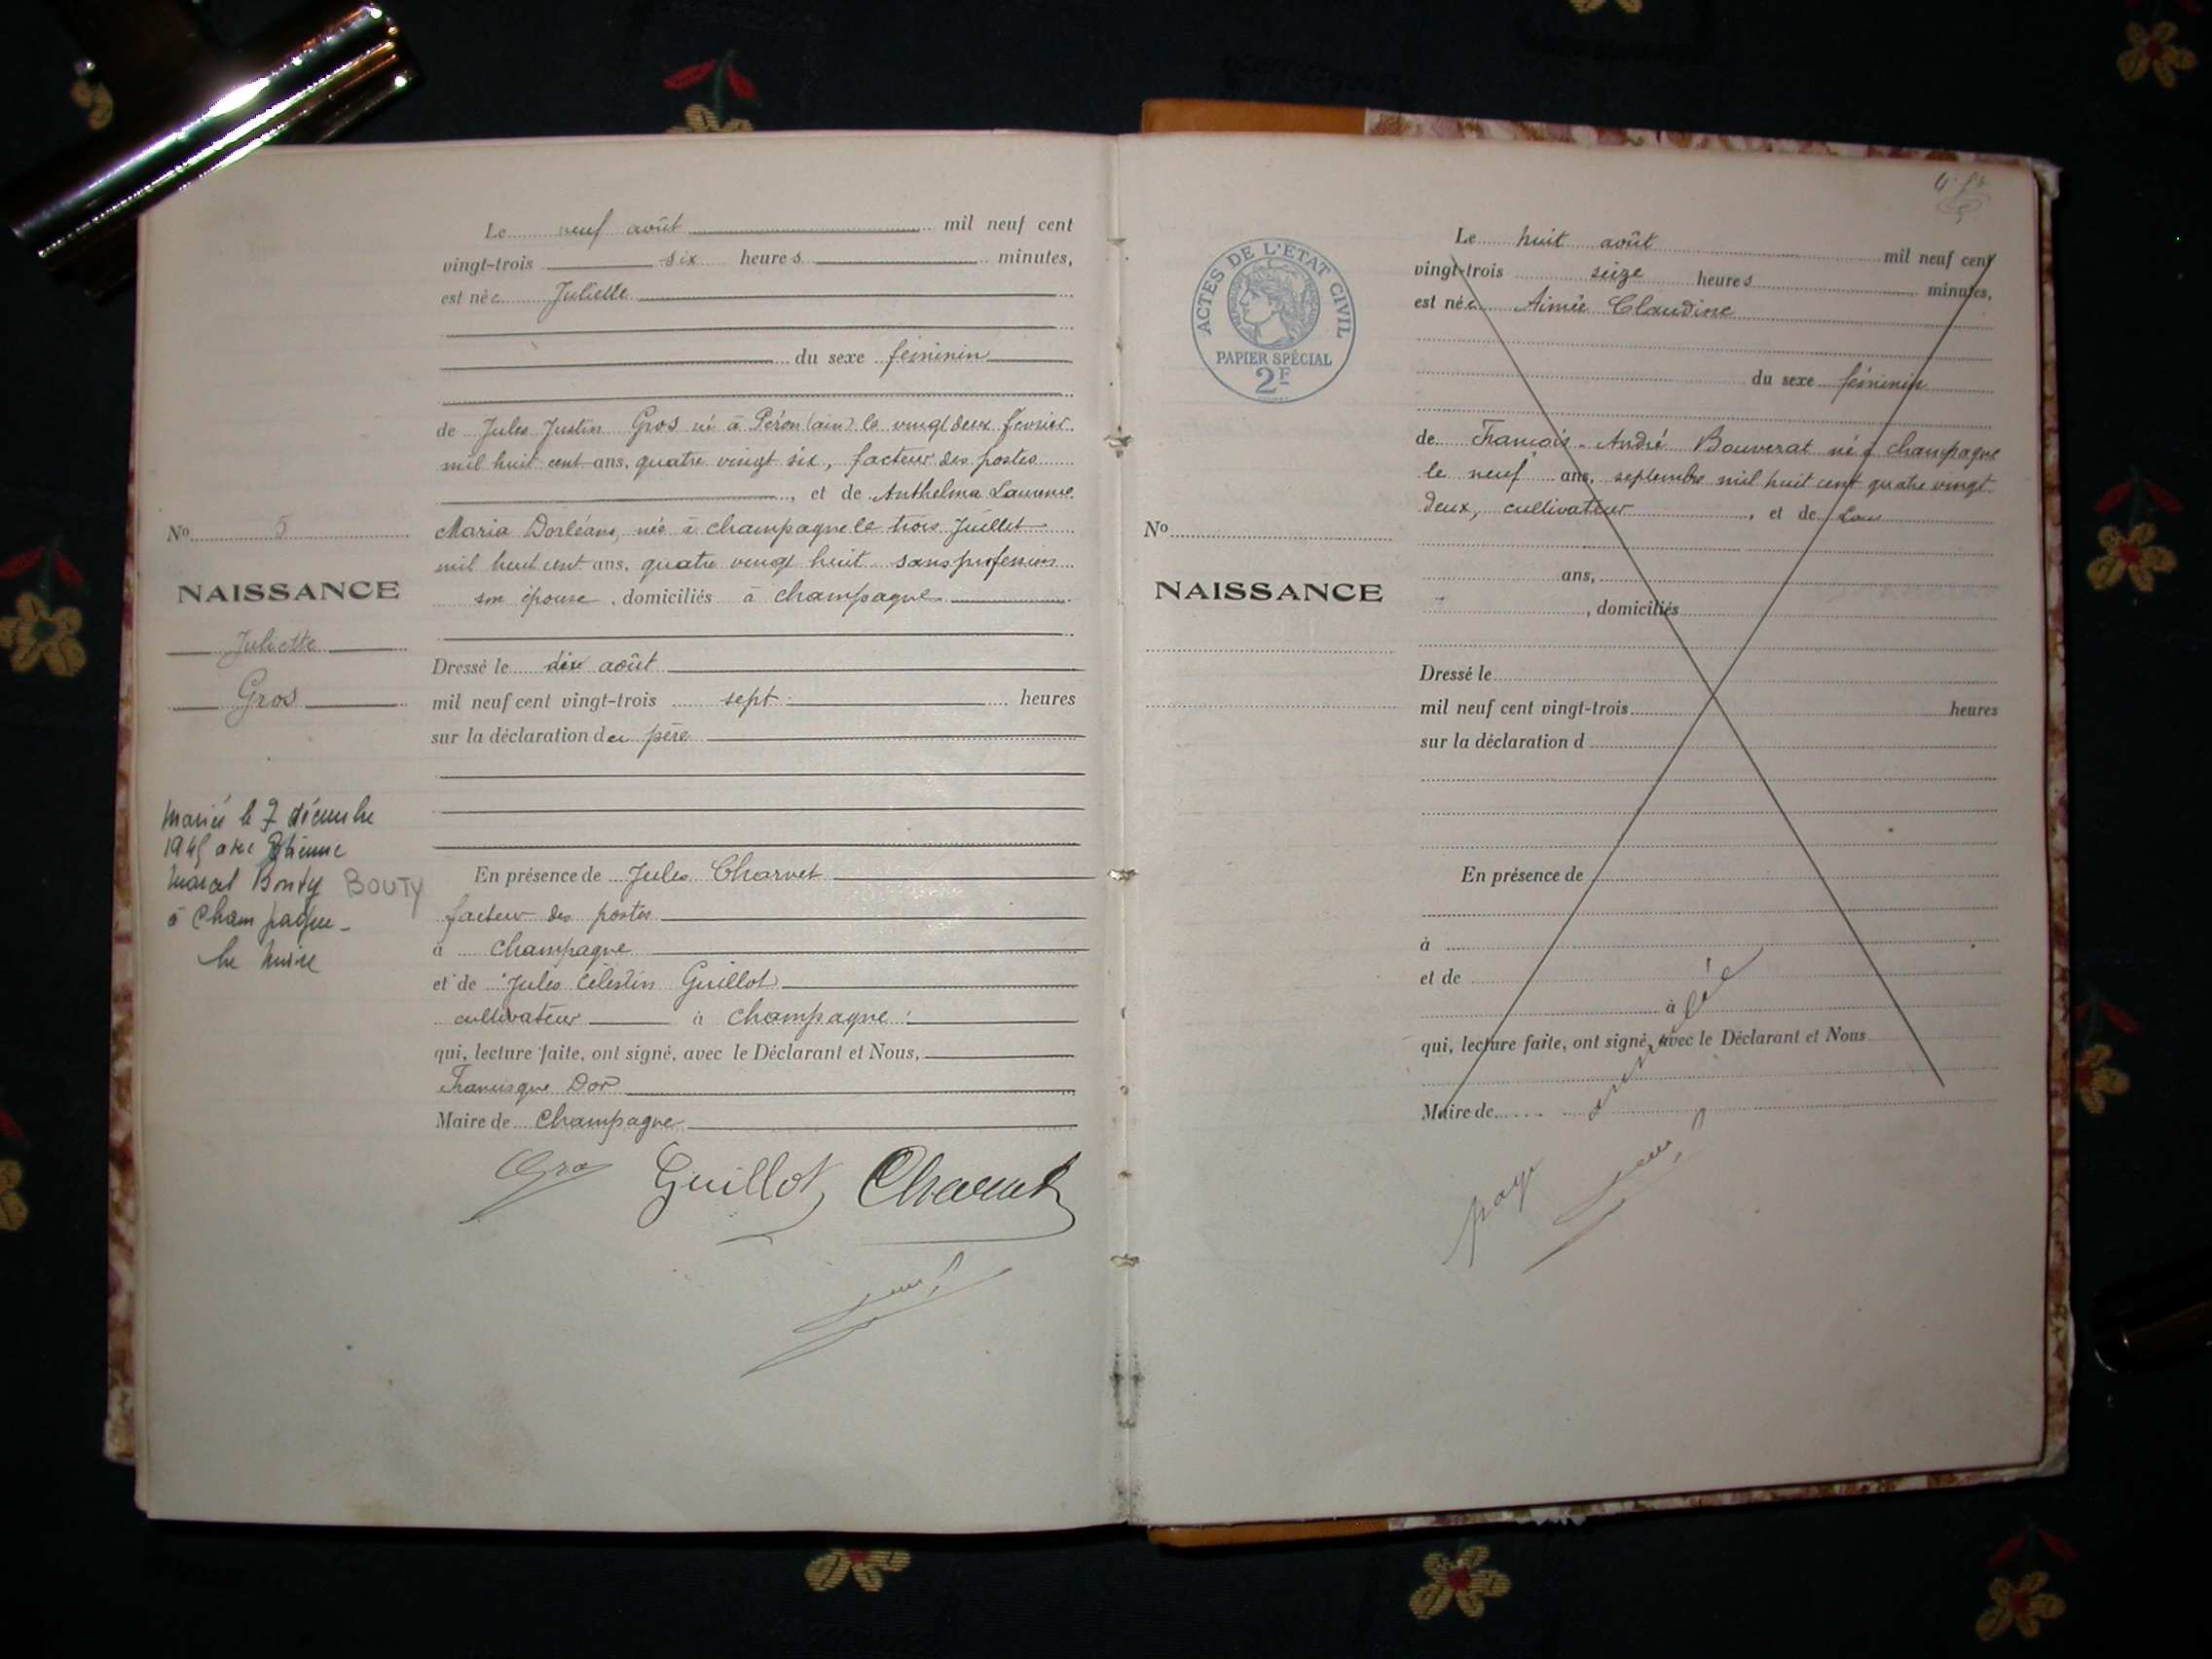 Le neuf août mil neuf cent
vingt-trois six heures minutes,
est née Juliette
du sexe féminin
de Jules Justin Gros né à Péron (ain) le vingt deux février
mil huit cent ans, quatre vingt six, facteur des postes
, et de Anthelma Laurence
Maria Dorléans, née à champagne le trois Juillet
mil huit cent ans, quatre vingt huit sans profession
son épouse, domiciliés à champagne
Dressé le dix août
mil neuf cent vingt-trois sept heures
sur la déclaration du père
En présence de Jules Charvet
facteur des postes
à champagne
et de Jules Célestin Guillot
cultivateur à champagne
qui, lecture faite, ont signé, avec le Déclarant et Nous,
Francisque Dor
Maire de Champagne
Gros Guillot Charvet
No 5
NAISSANCE
Juliette
Gros
Mariée le 7 décembre
1945 avec Etienne
Marcel Bouty BOUTY
à Champagne
Le Maire
ACTES DE L'ÉTAT CIVIL
PAPIER SPÉCIAL
2F
No
NAISSANCE
Le huit août mil neuf cent
vingt-trois seize heures minutes,
est née Aimée Claudine
du sexe féminin
de François-André Bouverat né à champagne
le neuf ans, septembre mil huit cent quatre vingt
deux, cultivateur , et de
ans,
, domiciliés
Dressé le
mil neuf cent vingt-trois heures
sur la déclaration d
En présence de
à
et de
à
qui, lecture faite, ont signé, avec le Déclarant et Nous
Maire de
page annulée